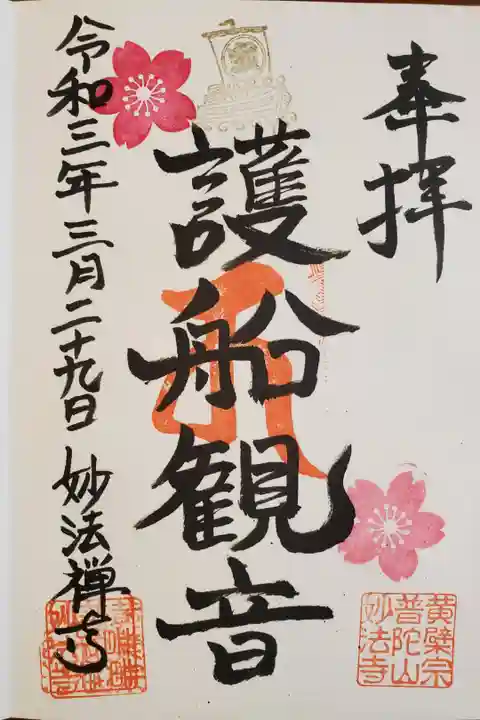 奉拝
黄檗宗
普陀山
妙法寺
護船観音
令和三年三月二十九日 妙法禅寺